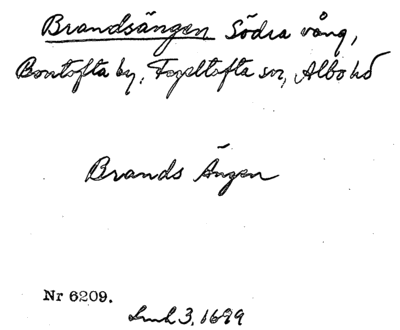 Brandsängen Södra vång,
Bontofta by, Fogeltofta sn, Albo hd
Brands Ängen
Nr 6209.
Lmh 3, 1699